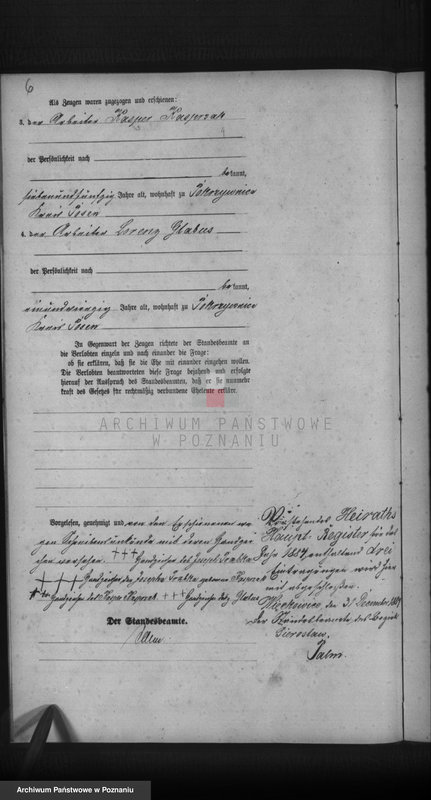 6
Als Zeugen waren zugezogen und erschienen:
3. der Arbeiter Kasper Kasprzak
der Persönlichkeit nach
bekannt,
siebenundfünfzig Jahre alt, wohnhaft zu
Kreis Posen
4. der Arbeiter Lorenz
der Persönlichkeit nach
bekannt,
einundvierzig Jahre alt, wohnhaft zu
Kreis Posen
In Gegenwart der Zeugen richtete der Standesbeamte an
die Verlobten einzeln und nach einander die Frage:
ob sie erklären, daß sie die Ehe mit einander eingehen wollen.
Die Verlobten beantworteten diese Frage bejahend und erfolgte
hierauf der Ausspruch des Standesbeamten, daß er sie nunmehr
kraft des Gesetzes für rechtmäßig verbundene Eheleute erkläre.
ARCHIWUM PAŃSTWOWE
W POZNANIU
Vorgelesen, genehmigt und von den Erschienenen we
gen Schreibensunkunde mit deren Handzei
chen versehen. +++ Handzeichen des Joseph
+++ Handzeichen der geborene
+++ Handzeichen des Kasper Kasprzak +++ Handzeichen des
Der Standesbeamte.
Palm
Vorstehendes Heiraths
Haupt-Register für das
Jahr enthaltend drei
Eintragungen wird hier
mit abgeschlossen.
den 31 Dezember
Der Standesbeamte des Bezirks
Palm.
Archiwum Państwowe w Poznaniu